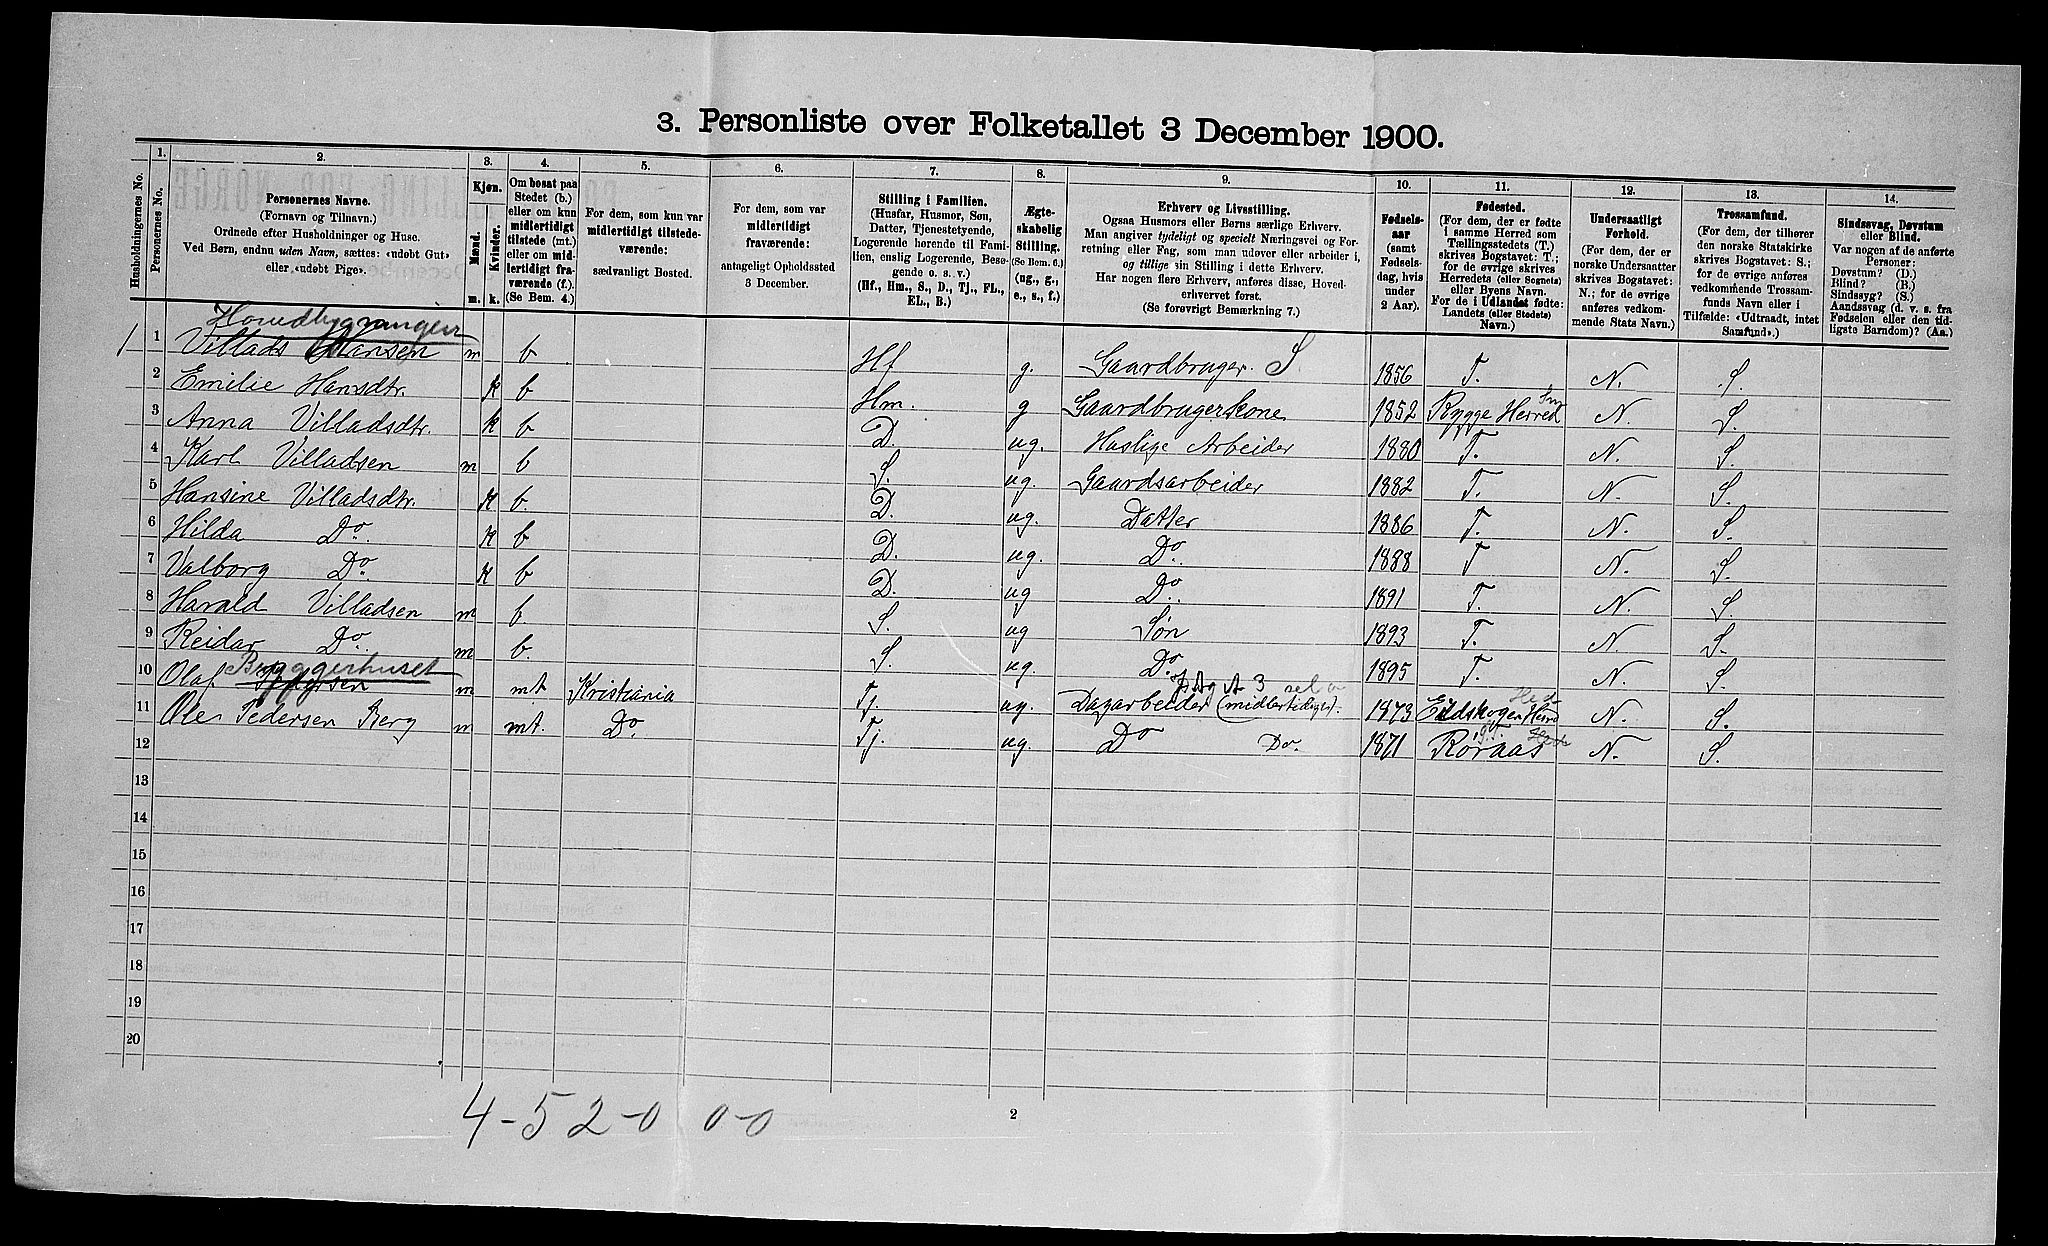 3. Personliste over Folketallet 3 December 1900.
Husholdningernes No.
1. Personernes No.
2. Personernes Navne.
(Fornavn og Tilnavn.)
Ordnede efter Husholdninger og Huse.
Ved Børn, endnu uden Navn, sættes: «udøbt Gut»
eller «udøbt Pige».
3. Kjøn.
Mænd. Kvinder.
m. k.
4. Om bosat paa
Stedet (b.)
eller om kun
midlertidigt
tilstede (mt.)
eller om mid-
lertidigt fra-
værende (f.).
(Se Bem. 4.)
5. For dem, som kun var
midlertidigt tilstede-
værende:
sædvanligt Bosted.
6. For dem, som var
midlertidigt
fraværende:
antageligt Opholdssted
3 December.
7. Stilling i Familien.
(Husfar, Husmor, Søn,
Datter, Tjenestetyende,
Logerende hørende til Fami-
lien, enslig Logerende, Besø-
gende o. s. v.)
(Hf., Hm., S., D., Tj., FL.,
EL., B.)
8. Ægte-
skabelig
Stilling.
(Se Bem. 6.)
(ug., g.,
e., s., f.)
9. Erhverv og Livsstilling.
Ogsaa Husmors eller Børns særlige Erhverv.
Man angiver tydeligt og specielt Næringsvei og For-
retning eller Fag, som man udøver eller arbeider i,
og tillige sin Stilling i dette Erhverv.
Har nogen flere Erhverv, anføres disse, Hoved-
erhvervet først.
(Se forøvrigt Bemærkning 7.)
10. Fødsels-
aar
(samt
Fødsels-
dag, hvis
under
2 Aar).
11. Fødested.
(For dem, der er fødte
i samme Herred som
Tællingsstedets (T.)
skrives Bogstavet: T.;
for de øvrige skrives
Herredets (eller Sognets)
eller Byens Navn.
For de i Udlandet fødte:
Landets (eller Stedets)
Navn.)
12. Undersaatligt
Forhold.
(For dem, der er
norske Undersaatter
skrives Bogstavet:
N.; for de øvrige
anføres vedkom-
mende Stats Navn.)
13. Trossamfund.
(For dem, der tilhører
den norske Statskirke
skrives Bogstavet: S.;
for de øvrige anføres
vedkommende Trossam-
funds Navn eller i
Tilfælde: «Udtraadt, intet
Samfund».)
14. Sindssvag, Døvstum
eller Blind.
Var nogen af de anførte
Personer:
Døvstum? (D.)
Blind? (B.)
Sindssyg? (S.)
Aandssvag (d. v. s. fra
Fødselen eller den tid-
ligste Barndom)? (Aa.)
Hovedbygningen
1 1 Villads Hansen m b Hf g. Gaardbruger. S 1856 T. N. S.
2 Emilie Hansdtr. k b Hm. g Gaardbrugerkone 1852 Rygge Herred N. S.
3 Anna Villadsdtr. k b D. ug. Huslige Arbeider 1880 T. N. S.
4 Karl Villadsen m b S. ug. Gaardsarbeider 1882 T. N. S.
5 Hansine Villadsdtr. k b. D. ug. Datter 1886 T. N. S.
6 Hilda Do. k b D. ug. Do 1888 T N. S.
7 Valborg Do k b D. ug Do. 1891 T. N. S
8 Harald Villadsen m b S. ug Søn 1893 T. N. S.
9 Reidar Do. m b. S. ug. Do. 1895 T. N. S.
Bryggerhuset
10 Olaf m mt Kristiania Tj. ug. Dagarbeider (midlertidigt). 1873 Eidskogen Herred N. S.
11 Ole Pedersen Berg m mt. Do. Tj. ug. Do Do. 1871 Roraas N. S.
12
13
14
15
16
17
18
19
20
4-52-0 0-0
2